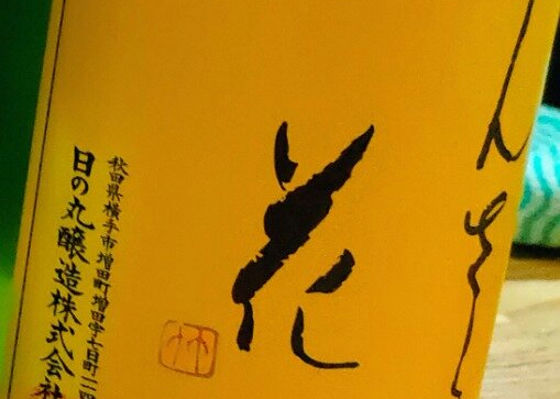 んさ
花
秋田県横手市増田町増田字七日町一一四
日の丸醸造株式会社